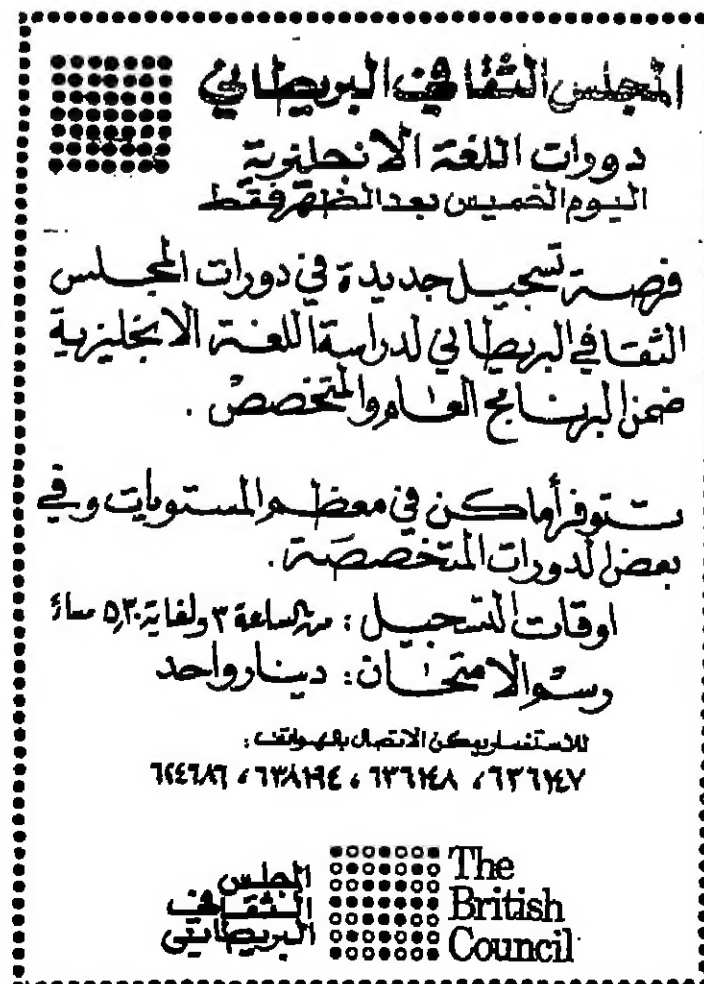 المجلس الثقافي البريطاني
دورات اللغة الانجليزية
اليوم الخميس بعد الظهر فقط
فرصة تسجيل جديدة في دورات المجلس
الثقافي البريطاني لدراسة اللغة الانجليزية
ضمن البرنامج العام والمتخصص .
ستتوفر أماكن في معظم المستويات وفي
بعض الدورات المتخصصة .
اوقات التسجيل : من الساعة ٣ ولغاية ٥,٣٠ مساءً
رسم الامتحان : دينار واحد
للاستفسار يمكن الاتصال بالهواتف :
٦٣٦١٤٧ ، ٦٣٦١٤٨ ، ٦٣٨١٩٤ ، ٦٢٤٦٨٦
المجلس
الثقافي
البريطاني
The
British
Council